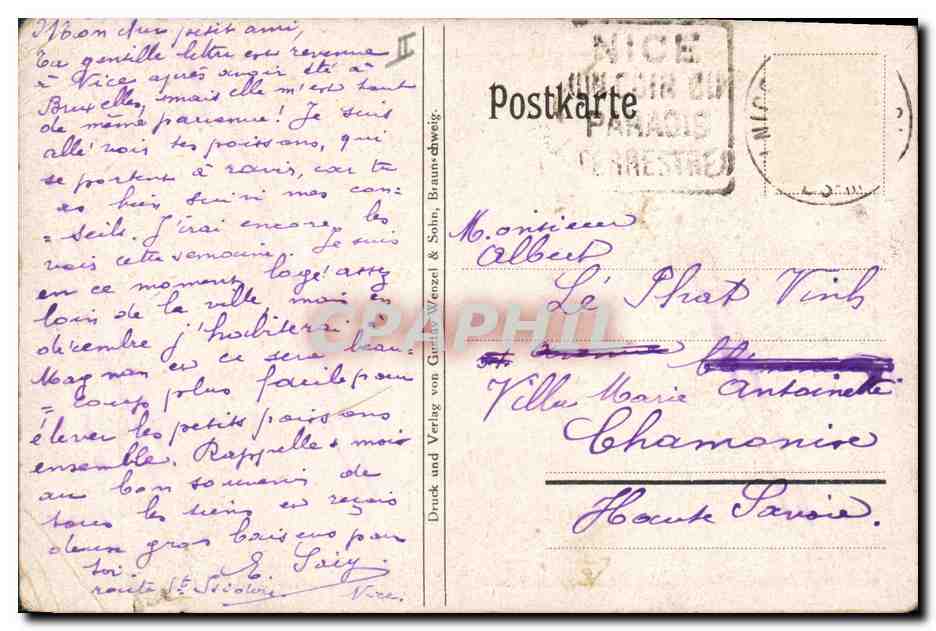 Mon cher petit ami,
Ta gentille lettre est revenue
à Nice après avoir été à
Bruxelles, mais elle m'est tout
de même parvenue! Je suis
allé voir tes poissons, qui
se portent à ravir, car tu
as bien suivi mes con-
=seils. J'irai encore les
voir cette semaine. Je suis
en ce moment logé assez
loin de la ville mais en
décembre j'habiterai la
Magnan et ce sera beau-
=coup plus facile pour
élever les petits poissons
ensemble. Rappelle-mois
au bon souvenir de
tous les tiens et reçois
deux gros baisers pour
toi. E.
route St Isidore
Nice.
II
Druck und Verlag von Gustav Wenzel & Sohn, Braunschweig.
Postkarte
NICE
UN COIN DU
PARADIS
TERRESTRE
Monsieur
Albert
Lê Phat Vinh
Villa Marie Antoinette
Chamonix
Haute Savoie.
CPAPHIL